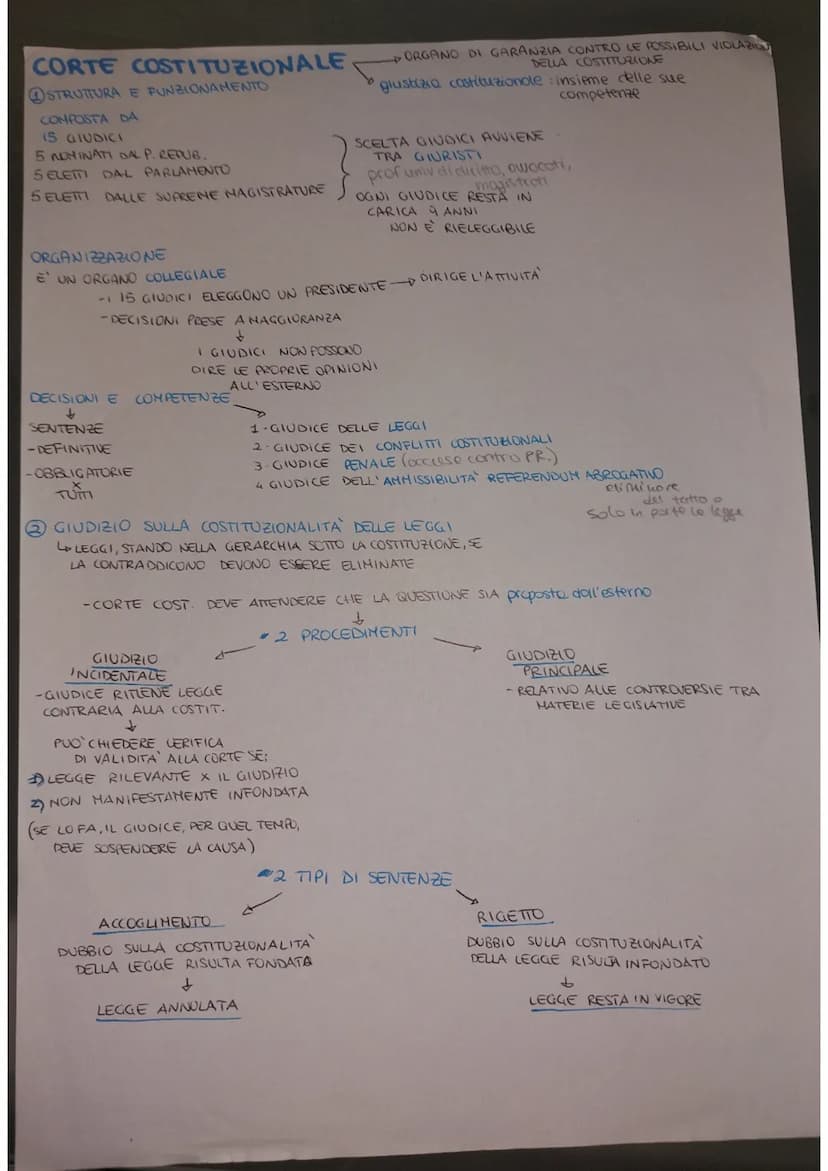 CORTE COSTITUZIONALE
→ ORGANO DI GARANZIA CONTRO LE POSSIBILI VIOLAZIONI
DELLA COSTITUZIONE
giustizia costituzionale : insieme delle sue
competenze
① STRUTTURA E FUNZIONAMENTO
COMPOSTA DA
15 GIUDICI
5 NOMINATI DAL P. REPUB.
5 ELETTI DAL PARLAMENTO
5 ELETTI DALLE SUPREME MAGISTRATURE
SCELTA GIUDICI AVVIENE
TRA GIURISTI
prof univ di diritto, avvocati,
magistrati
OGNI GIUDICE RESTA IN
CARICA 9 ANNI
NON È RIELEGGIBILE
ORGANIZZAZIONE
E' UN ORGANO COLLEGIALE
- I 15 GIUDICI ELEGGONO UN PRESIDENTE → DIRIGE L'ATTIVITA'
- DECISIONI PRESE A MAGGIORANZA
↓
I GIUDICI NON POSSONO
DIRE LE PROPRIE OPINIONI
ALL'ESTERNO
DECISIONI E COMPETENZE
↓
SENTENZE
- DEFINITIVE
- OBBLIGATORIE
X
TUTTI
1 - GIUDICE DELLE LEGGI
2 - GIUDICE DEI CONFLITTI COSTITUZIONALI
3 - GIUDICE PENALE (accuse contro PR.)
4 GIUDICE DELL'AMMISSIBILITA' REFERENDUM ABROGATIVO
eliminare
del tutto o
solo in parte la legge
② GIUDIZIO SULLA COSTITUZIONALITA' DELLE LEGGI
↳ LEGGI, STANDO NELLA GERARCHIA SOTTO LA COSTITUZIONE, SE
LA CONTRADDICONO DEVONO ESSERE ELIMINATE
- CORTE COST. DEVE ATTENDERE CHE LA QUESTIONE SIA proposta dall'esterno
↓
• 2 PROCEDIMENTI
GIUDIZIO
INCIDENTALE
- GIUDICE RITIENE LEGGE
CONTRARIA ALLA COSTIT.
↓
PUO' CHIEDERE VERIFICA
DI VALIDITA' ALLA CORTE SE:
1) LEGGE RILEVANTE X IL GIUDIZIO
2) NON MANIFESTAMENTE INFONDATA
(SE LO FA, IL GIUDICE, PER QUEL TEMPO,
DEVE SOSPENDERE LA CAUSA)
GIUDIZIO
PRINCIPALE
- RELATIVO ALLE CONTROVERSIE TRA
MATERIE LEGISLATIVE
• 2 TIPI DI SENTENZE
ACCOGLIMENTO
DUBBIO SULLA COSTITUZIONALITA'
DELLA LEGGE RISULTA FONDATA
↓
LEGGE ANNULATA
RIGETTO
DUBBIO SULLA COSTITUZIONALITA'
DELLA LEGGE RISULTA INFONDATO
↓
LEGGE RESTA IN VIGORE